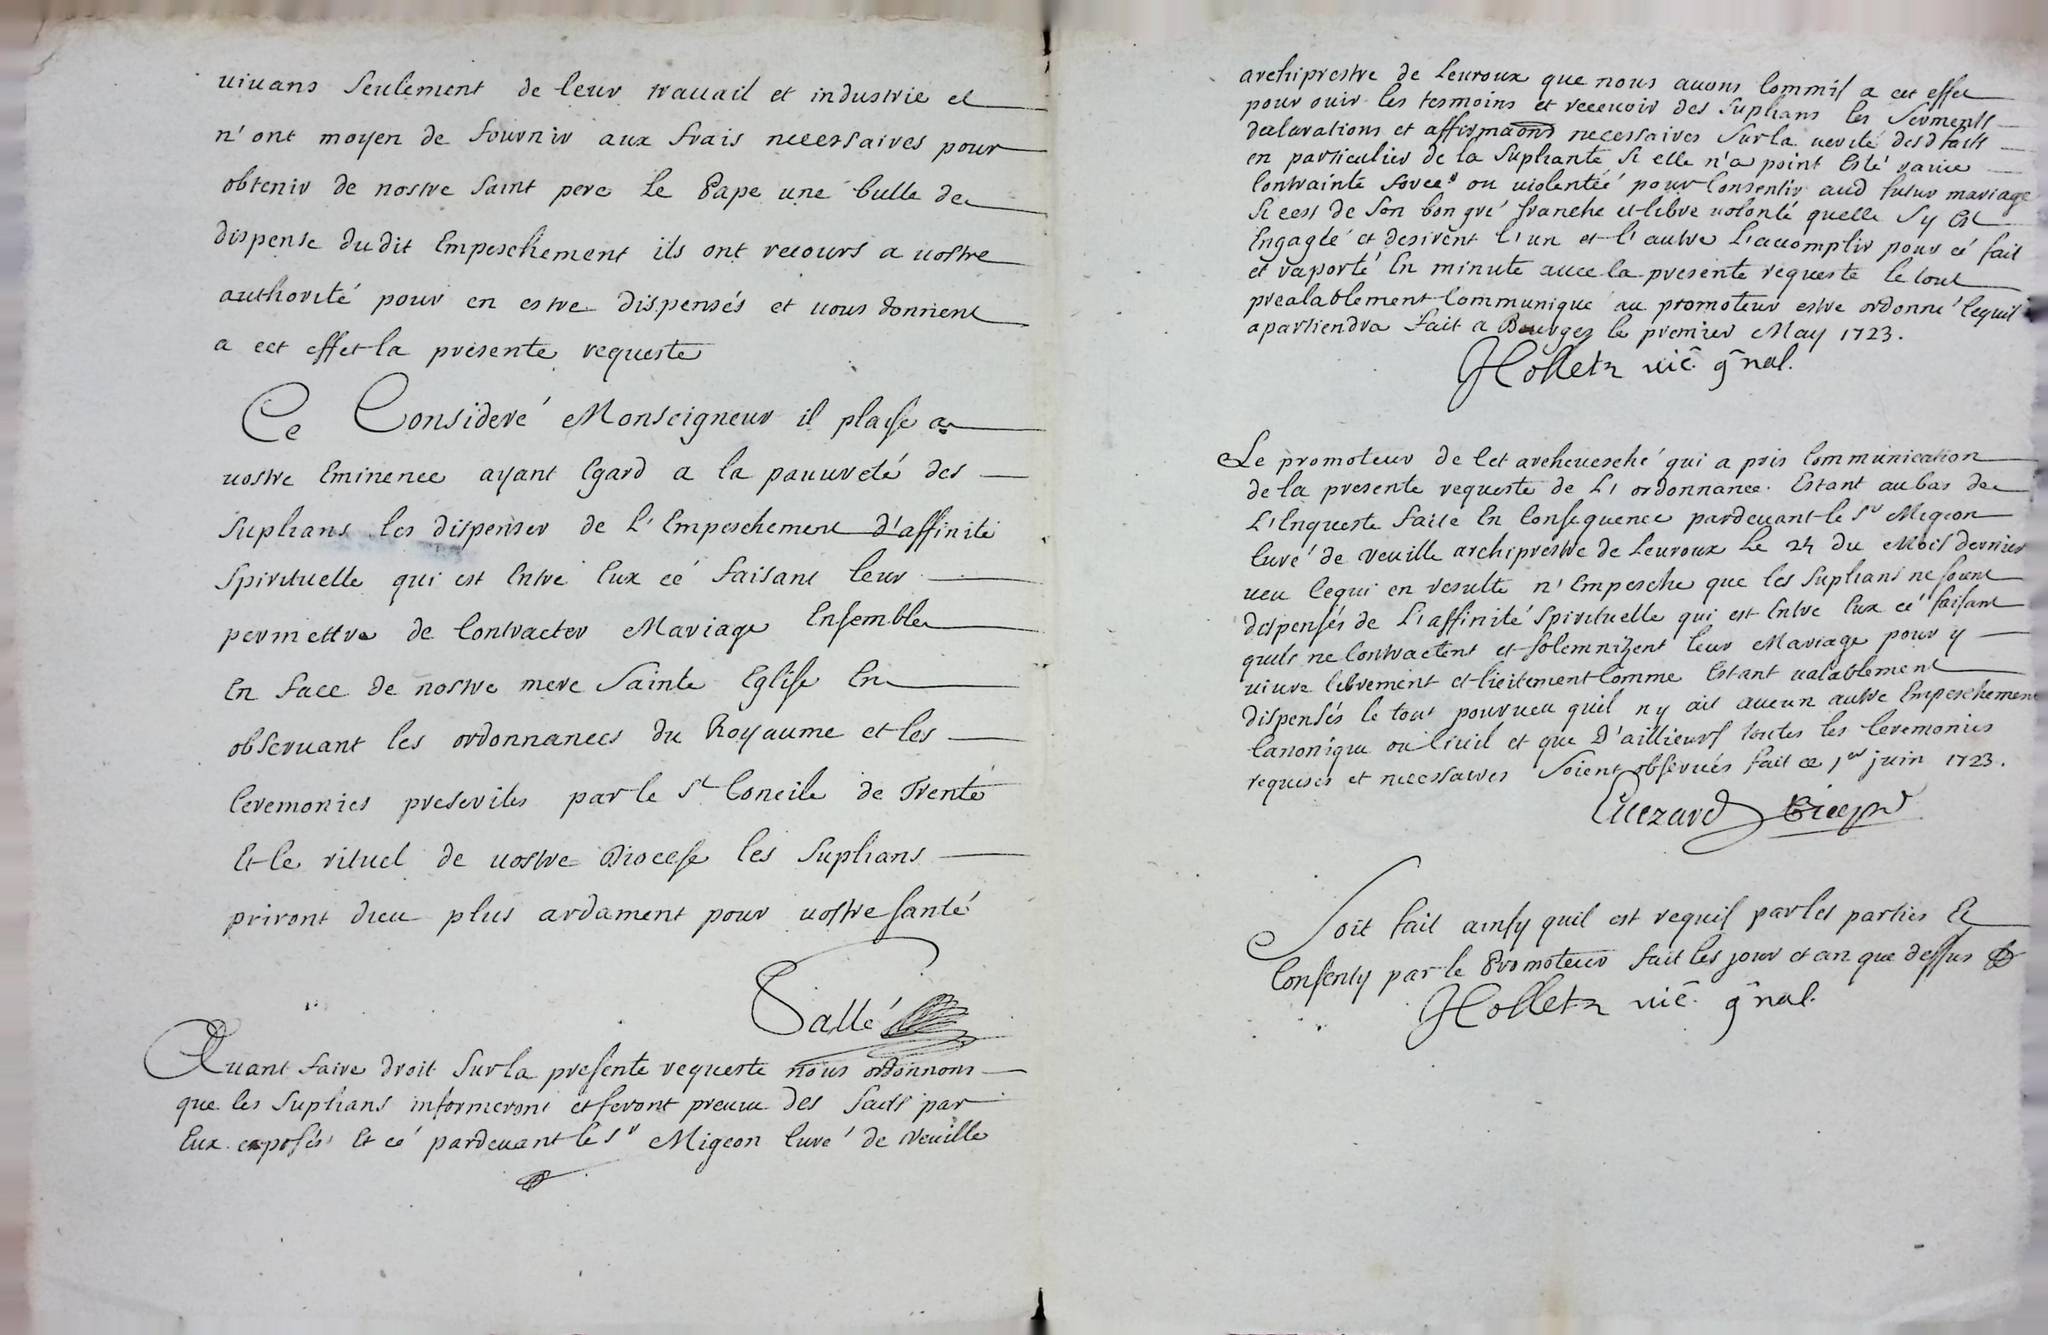 vivans seulement de leur travail et industrie et
n'ont moyen de fournir aux frais necessaires pour
obtenir de nostre saint pere Le Pape une bulle de
dispense du dit Empeschement ils ont recours a vostre
authorité pour en estre dispensés et vous donnent
a cet effet la presente requeste
Ce Consideré Monseigneur il plaise a
vostre Eminence ayant Egard a la pauvreté des
Suplians les dispenser de L'Empeschement d'affinité
Spirituelle qui est Entre Eux cé faisant leur
permettre de Contracter Mariage Ensemble
En face de nostre mere Sainte Eglise En
observant les ordonnances du Royaume et les
Ceremonies prescrites par le St Concile de Trente
Et le rituel de vostre Diocese les Suplians
priront dieu plus ardament pour vostre santé
Sallé
Avant faire droit Sur la presente requeste nous ordonnons
que les Suplians informeront et feront preuve des faits par
Eux exposés Et cé pardevant le Sr Migeon Curé de Veuille
archiprestre de Levroux que nous avons Commis a cet effet
pour ouir les tesmoins et recevoir des Suplians les Serments
declarations et affirmaons necessaires Sur la verité desd faits
en particulier de la Supliante Si elle n'a point Esté ravie
Contrainte forcée ou violentée pour Consentir aud futur mariage
Si cest de Son bon gré franche et libre volonté quelle Sy Est
Engagée et desirent L'un et L'autre L'accomplir pour cé fait
et raporté En minute avec la presente requeste le tout
prealablement Communiqué au promoteur estre ordonné Cequil
apartiendra fait a Bourges le premier May 1723.
Holletz vic. gnal.
Le promoteur de Cet archevesché qui a pris Communication
de la presente requeste de L'ordonnance Estant au bas de
L'Enqueste faite En Consequence pardevant le Sr Migeon
Curé de veuille archiprestre de Levroux Le 24 du Mois dernier
veu Cequi en resulte n'Empesche que les Suplians ne soient
dispensés de L'affinité Spirituelle qui est Entre Eux cé faisant
quils ne Contractent et Solemnizent leur Mariage pour y
vivre librement et licitement Comme Estant valablement
dispensés le tout pourveu quil ny ait aucun autre Empeschement
Canonique ou Civil et que D'aillieurs toutes les Ceremonies
requises et necessaires Soient observées fait ce 1er juin 1723.
Soit fait ainsy quil est requis par les parties Et
Consenty par le Promoteur fait les jour et an que dessus
Holletz vic. gnal.